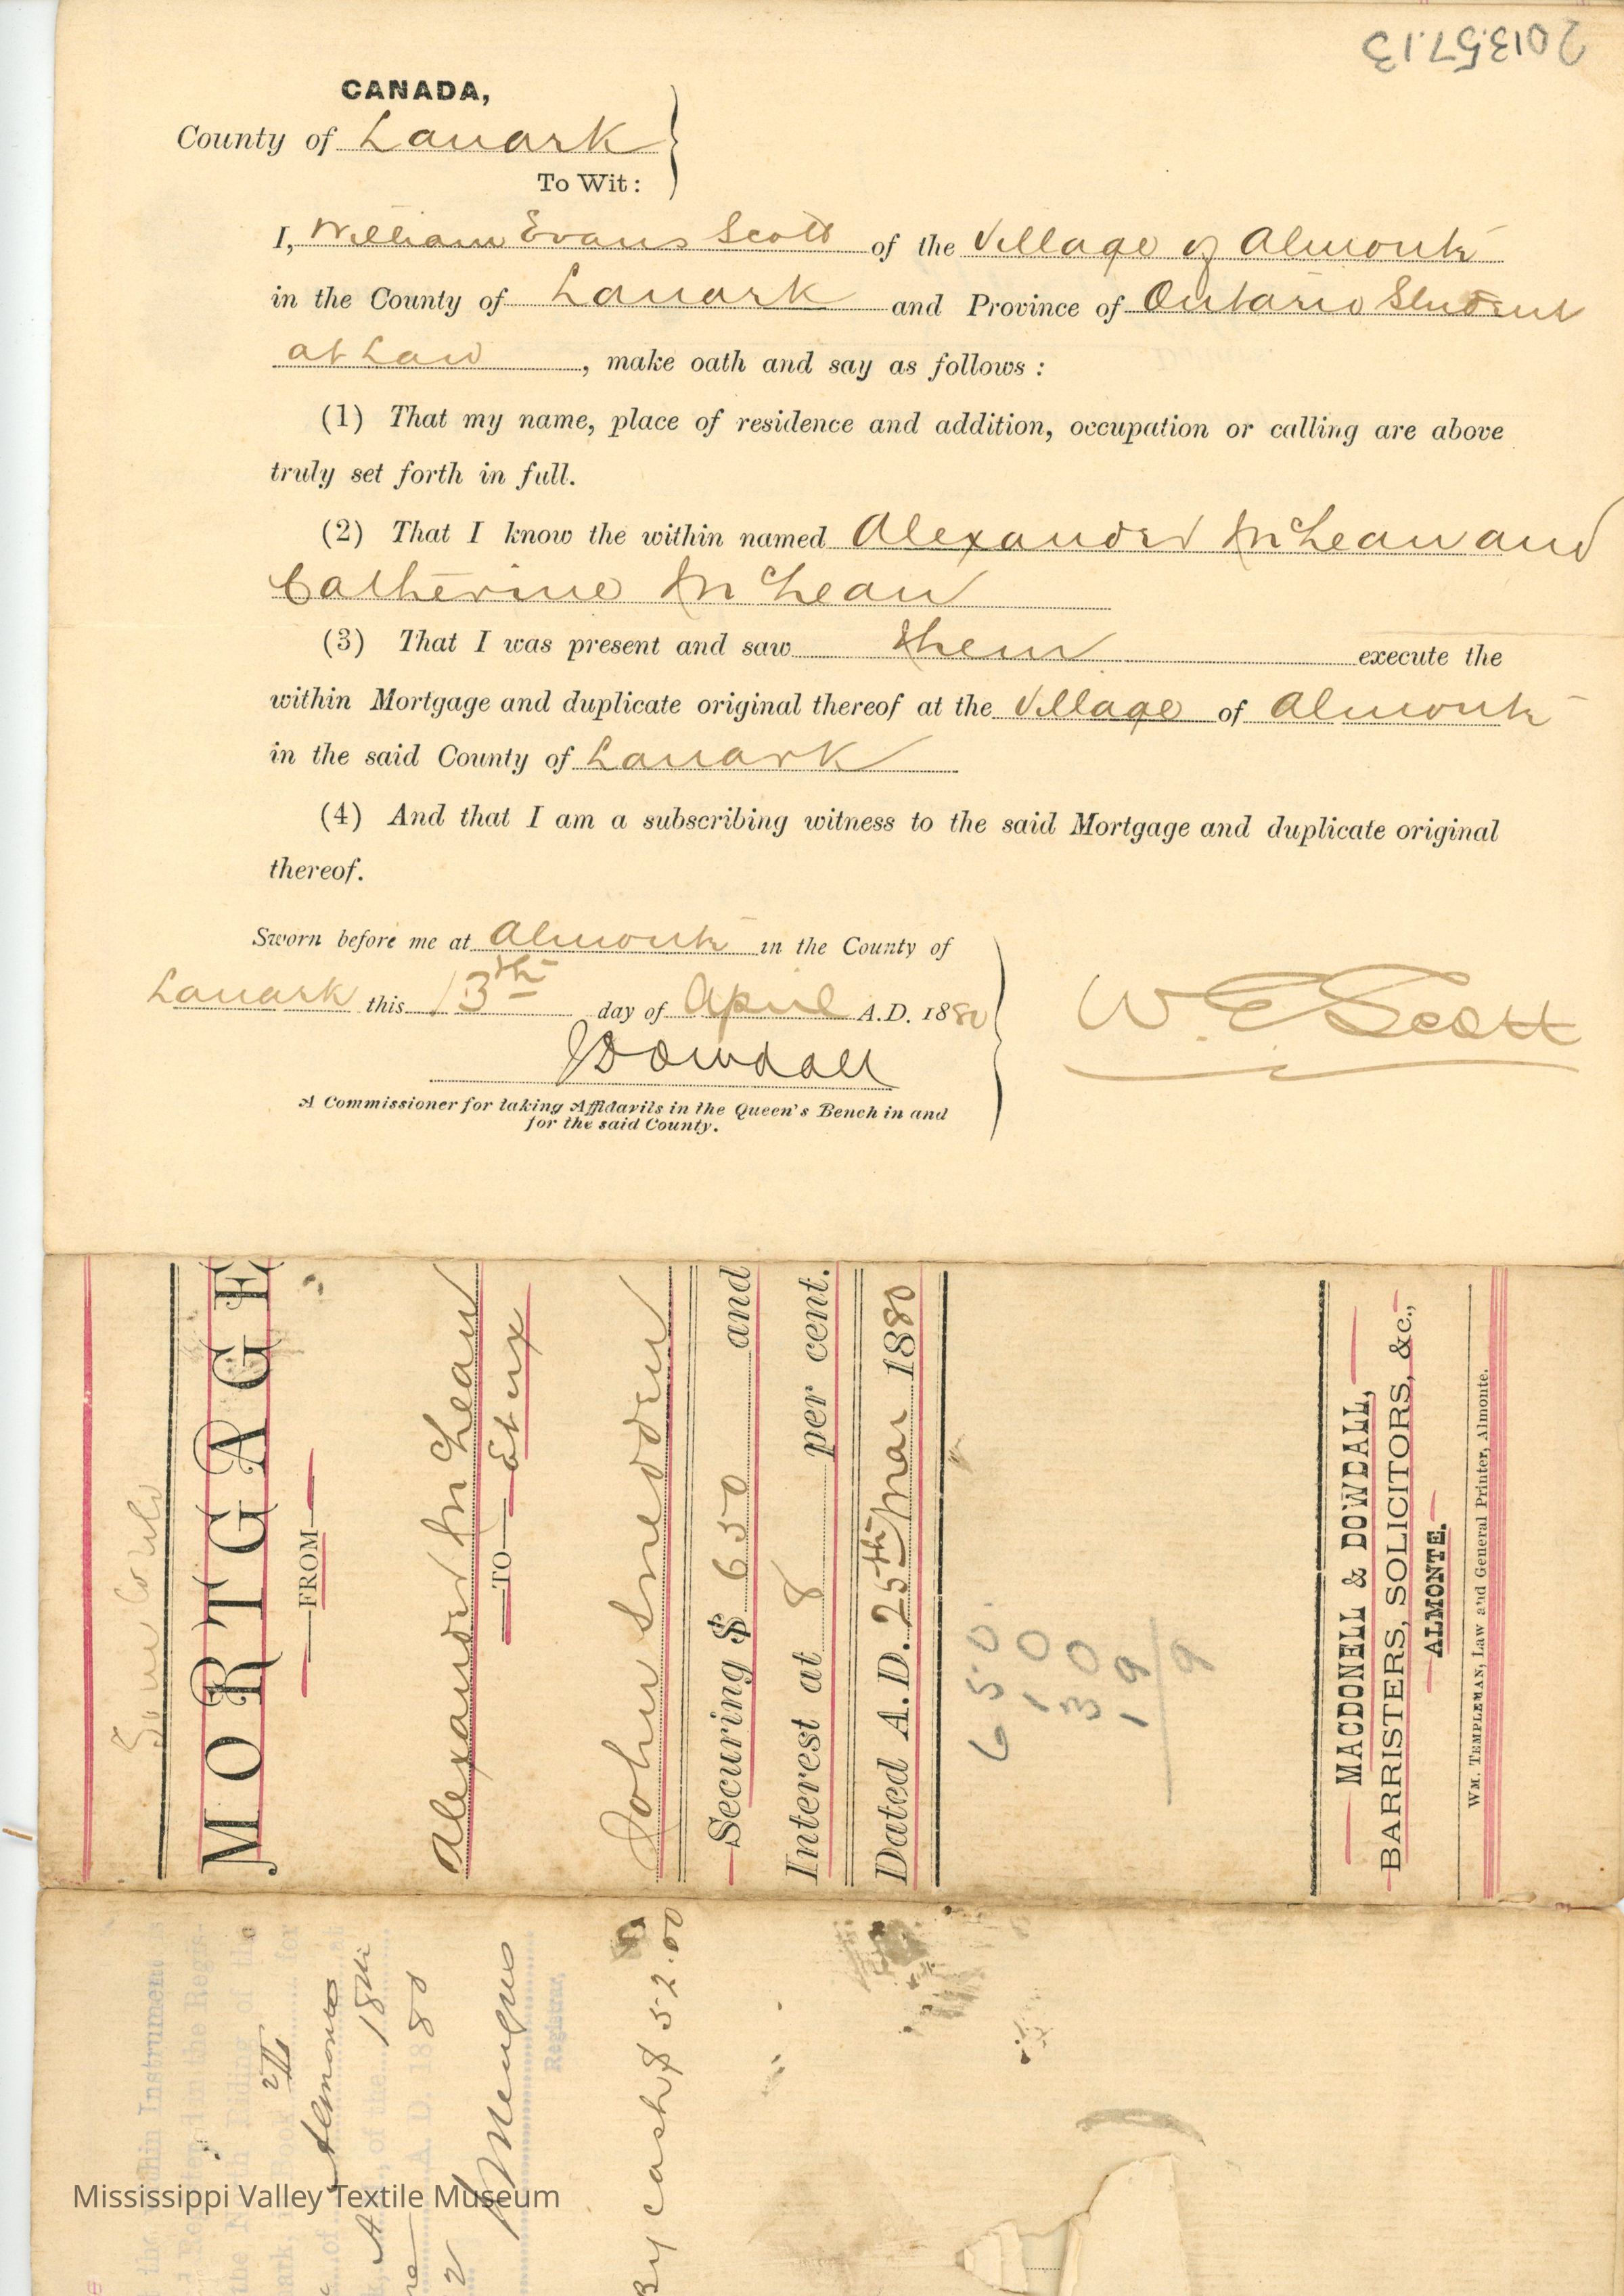 2013.57.13
CANADA,
County of Lanark
To Wit:
I, William Evans Scott of the Village of Almonte
in the County of Lanark and Province of Ontario Student
at Law, make oath and say as follows:
(1) That my name, place of residence and addition, occupation or calling are above
truly set forth in full.
(2) That I know the within named Alexander McLean and
Catherine McLean
(3) That I was present and saw them execute the
within Mortgage and duplicate original thereof at the Village of Almonte
in the said County of Lanark
(4) And that I am a subscribing witness to the said Mortgage and duplicate original
thereof.
Sworn before me at Almonte in the County of
Lanark this 13th day of April A.D. 1880
J Dowdall
W. E. Scott
A Commissioner for taking Affidavits in the Queen's Bench in and
for the said County.
MORTGAGE
FROM
Alexander McLean
TO Et ux
John Snedden
Securing $ 650 and
Interest at 8 per cent.
Dated A.D. 25th Mar 1880
650.
100
30
19
9
MACDONELL & DOWDALL,
BARRISTERS, SOLICITORS, &c.,
ALMONTE.
WM. TEMPLEMAN, Law and General Printer, Almonte.
within Instrument
in the Regis-
the North Riding of the
Book for
of Almonte
of the 18th
A. D. 1880
Menzies
Registrar.
By cash $ 52.00
Mississippi Valley Textile Museum